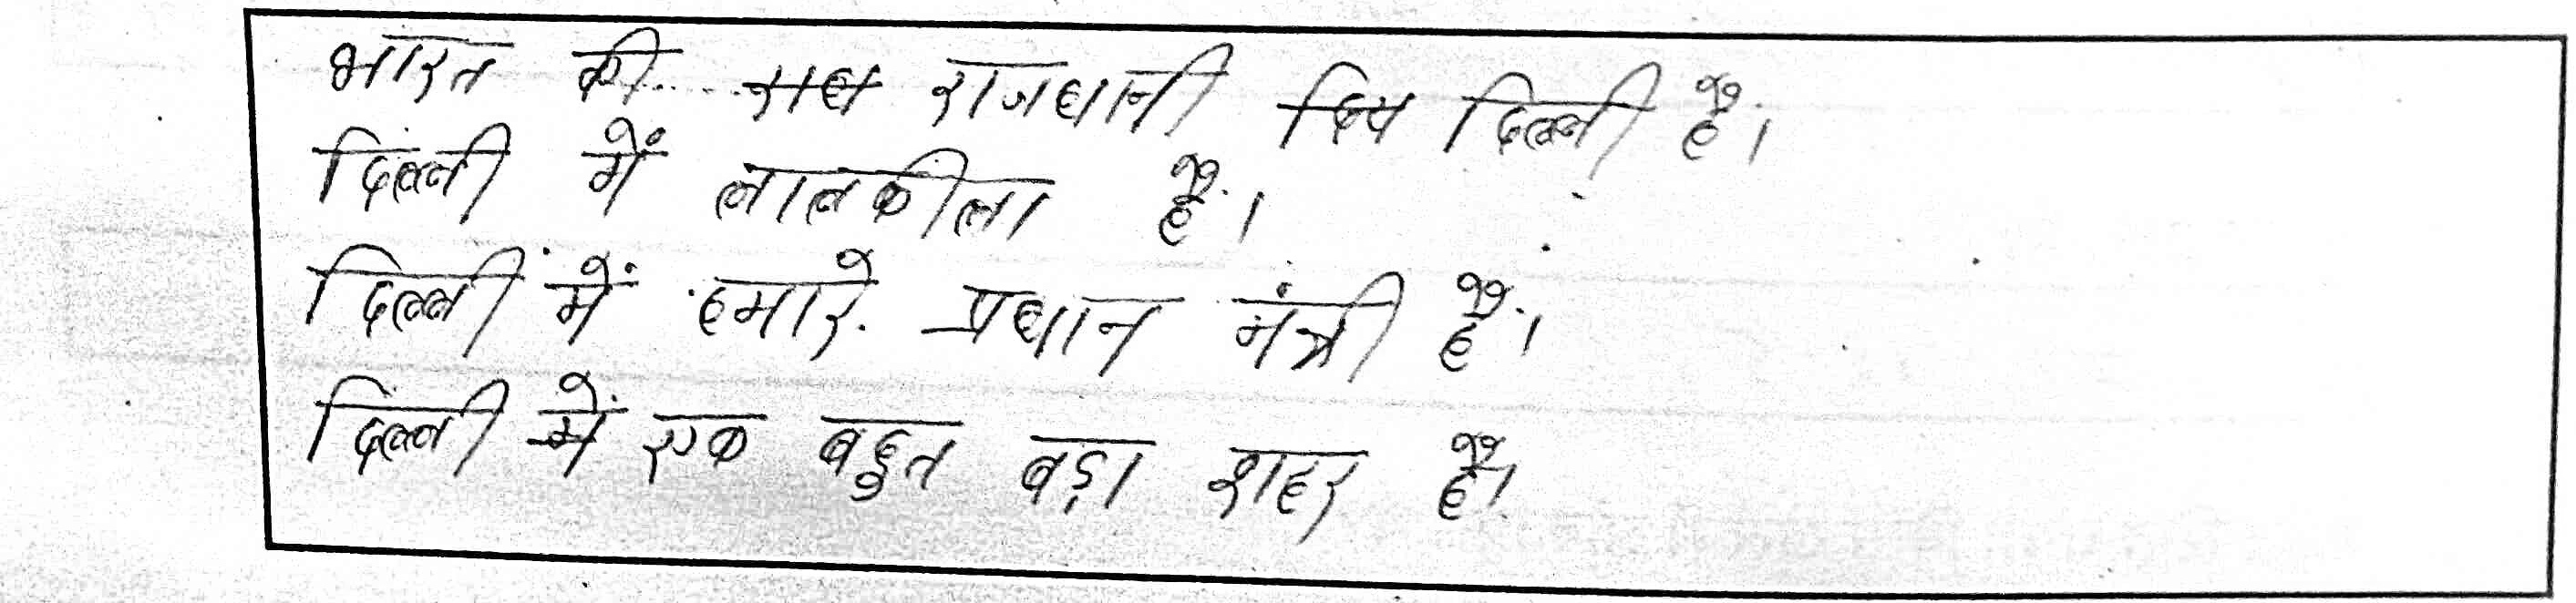 भारत की राजधानी दिल्ली है।
दिल्ली में लालकीला है।
दिल्ली में हमारे प्रधान मंत्री है।
दिल्ली में एक बहुत बड़ा शहर है।